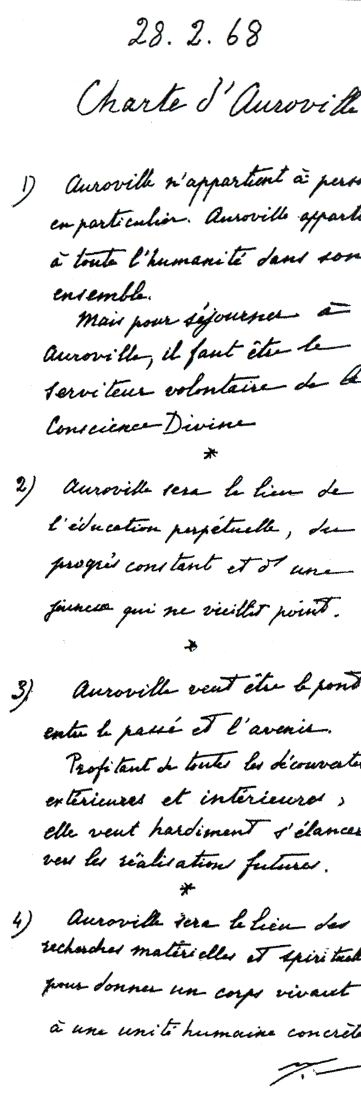 28.2.68
Charte d'Auroville
1) Auroville n'appartient à perso
en particulier. Auroville apparti
à toute l'humanité dans son
ensemble.
Mais pour séjourner à
Auroville, il faut être le
serviteur volontaire de la
Conscience Divine
*
2) Auroville sera le lieu de
l'éducation perpétuelle, du
progrès constant et d'une
jeunesse qui ne vieillit point.
*
3) Auroville veut être le pont
entre le passé et l'avenir.
Profitant de toutes les découvertes
extérieures et intérieures,
elle veut hardiment s'élancer
vers les réalisations futures.
*
4) Auroville sera le lieu des
recherches matérielles et spirituell
pour donner un corps vivant
à une unité humaine concrète